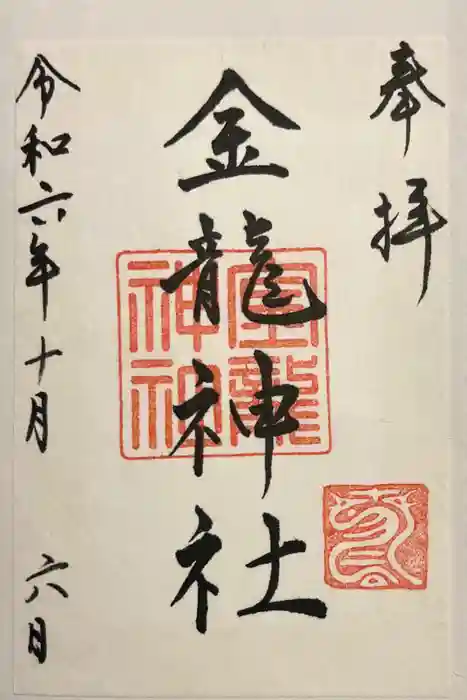 奉拝
金龍神社
金龍神社
令和六年十月六日